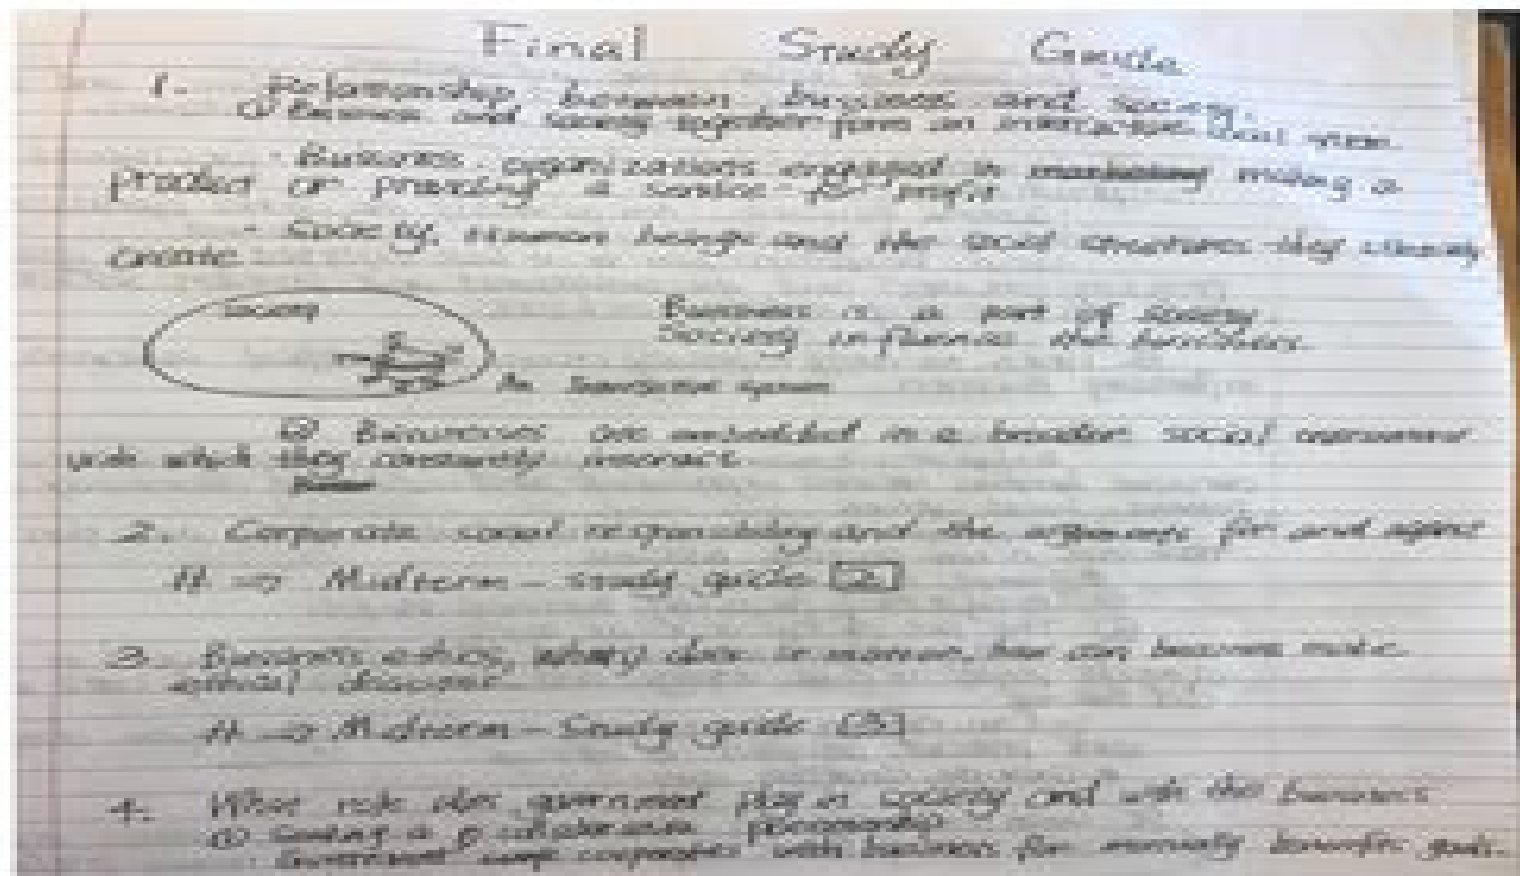 Final Study Guide
1. Relationship between business and society.
① Business and society together form an interactive social system.
- Business. organizations engaged in making a
product or providing a service for profit
- Society. Human beings and the social structures they
create
Society
Business is a part of society.
Society influences the business.
An Interactive system
② Businesses are embedded in a broader social environment
with which they constantly interact.
2. Corporate social responsibility and the arguments for and against
→ Midterm - study guide 2
3. Business ethics, why does it matter, how can business make
ethical
→ Midterm - Study guide 3
4. What role does government play in society and with the business
① a collaborative partnership
- Government cooperates with business for mutually goals.